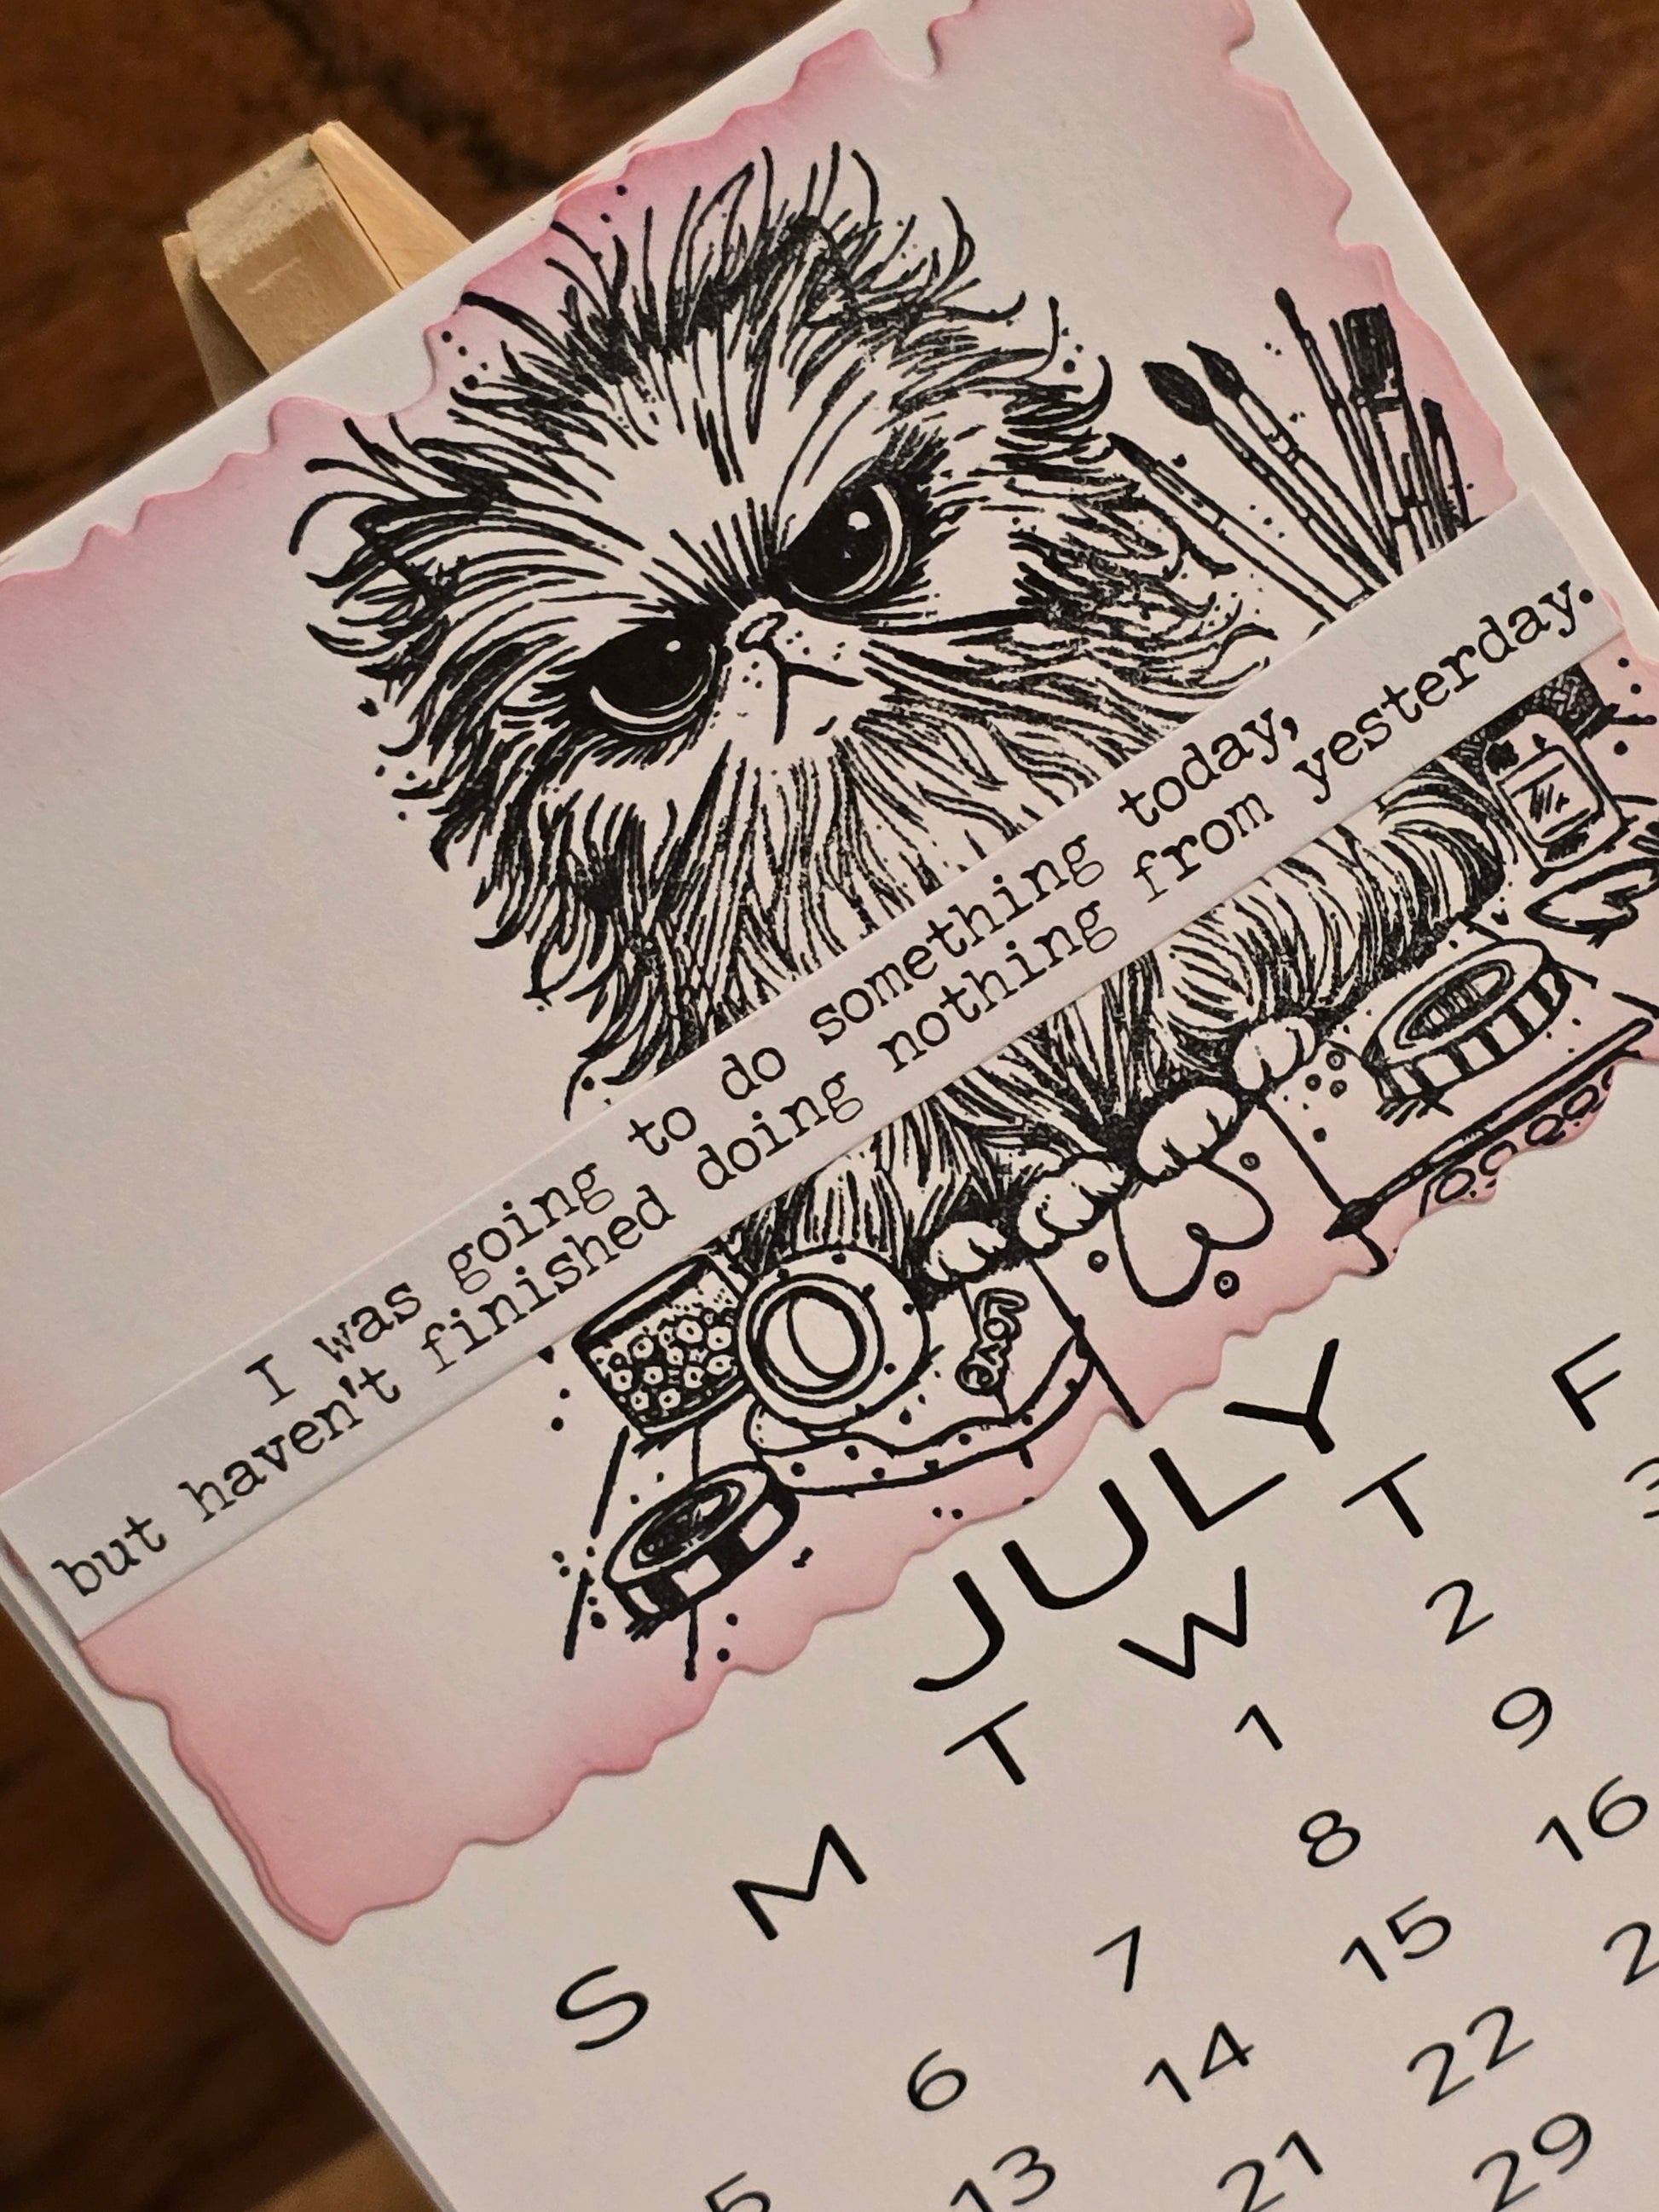 love
I was going to do something today,
but haven't finished doing nothing from yesterday.
JULY
S M T W T F
1 2
5 6 7 8 9
13 14 15 16
21 22
29